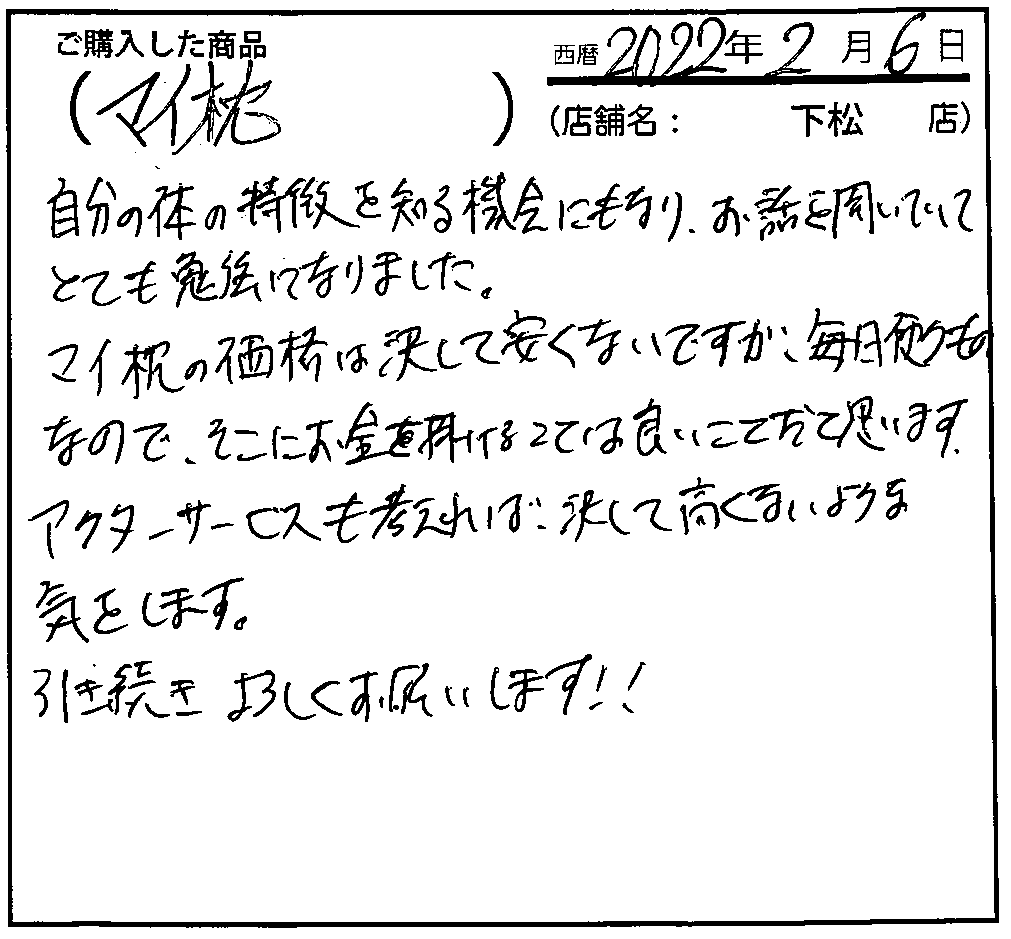 ご購入した商品
(マイ枕)
西暦2022年2月6日
(店舗名： 下松 店)
自分の体の特徴を知る機会にもなり、お話を聞いていて
とても勉強になりました。
マイ枕の価格は決して安くないですが、毎日使うもの
なので、そこにお金を掛けることは良いことだと思います。
アフターサービスも考えれば、決して高くないような
気をします。
引き続きよろしくお願いします!!